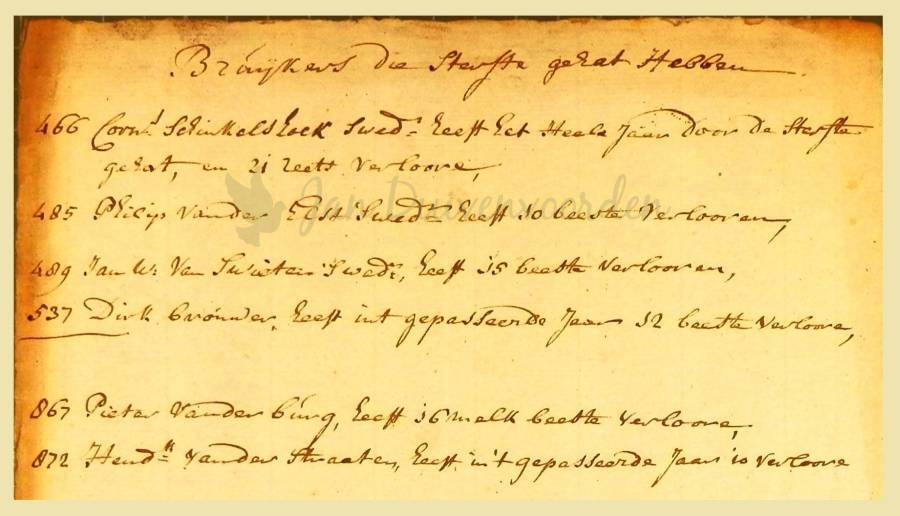 Bruijkers die Sterfte gehat Hebben
466 Corns. Schinkelshoek Swedr. heeft het Heele Jaar door de Sterfte
gehat, en 21 reets Verloore,
485 Philip Vander Elst Swedr. heeft 10 beeste Verlooren,
489 Jan Ws. Van Swieten Swedr., heeft 15 beeste Verlooren,
537 Dirk brouwer, heeft int gepasseerde Jaar 12 beeste Verloore,
867 Pieter Vander burg, heeft 16 melk beeste Verloore,
872 Hendk. Vander Straaten, heeft in't gepasseerde Jaar 10 Verloore
Jan Duivenvoorden